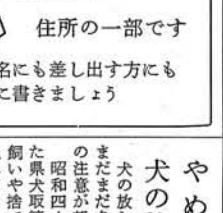 住所の一部です
名にも差し出す方にも
に書きましょう
やめ
犬の
犬の放
まだまだ
の注意が
昭和四
た県犬取
飼いや捨